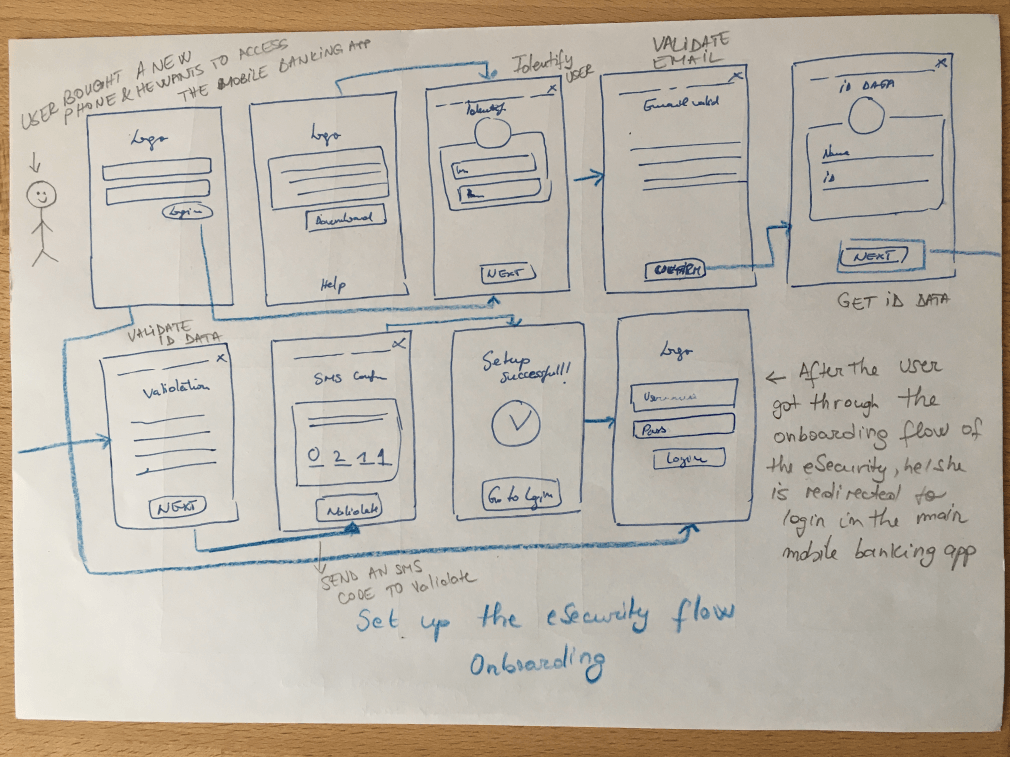 USER BOUGHT A NEW
PHONE & HE WANTS TO ACCESS
THE MOBILE BANKING APP
Logo
Login
Logo
Download
Help
Identify
USER
Identify
NEXT
VALIDATE
EMAIL
Email valid
CONFIRM
ID DATA
Name
ID
NEXT
GET ID DATA
VALIDATE
ID DATA
Validation
NEXT
SMS Conf
0 2 1 1
Validate
SEND AN SMS
CODE TO Validate
Setup
successful!!
Go to Login
Logo
Username
Pass
Login
← After the user
got through the
onboarding flow of
the eSecurity, he/she
is redirected to
login in the main
mobile banking app
Set up the eSecurity flow
Onboarding